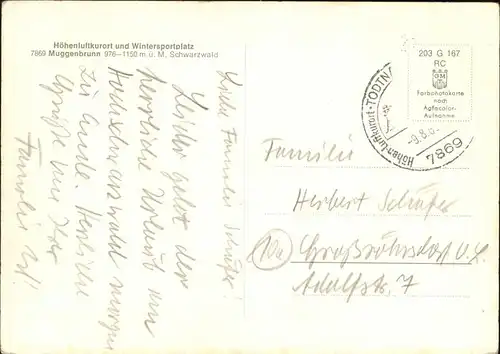 Höhenluftkurort und Wintersportplatz
7869 Muggenbrunn 976–1150 m ü. M. Schwarzwald
Liebe Familie Schäfer!
Leider geht der
herrliche Urlaub im
Hochschwarzwald morgen
zu Ende. Herzliche
Grüße von Ihrer
Familie
203 G 167
RC
Farbphotokarte
nach
Agfacolor-
Aufnahme
Höhen-Luftkurort · TODTN
-9.8.6
7869
Familie
Herbert Schäfer
Großröhrsdorf
Adolfstr. 7